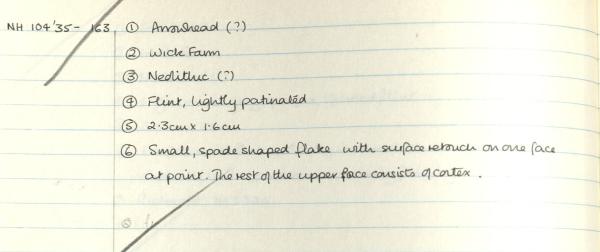 NH 104'35 - 163. ① Arrowhead (?)
② Wick Farm
③ Neolithic (?)
④ Flint, lightly patinated
⑤ 2.3cm x 1.6cm
⑥ Small, spade shaped flake with surface retouch on one face
at point. The rest of the upper face consists of cortex.